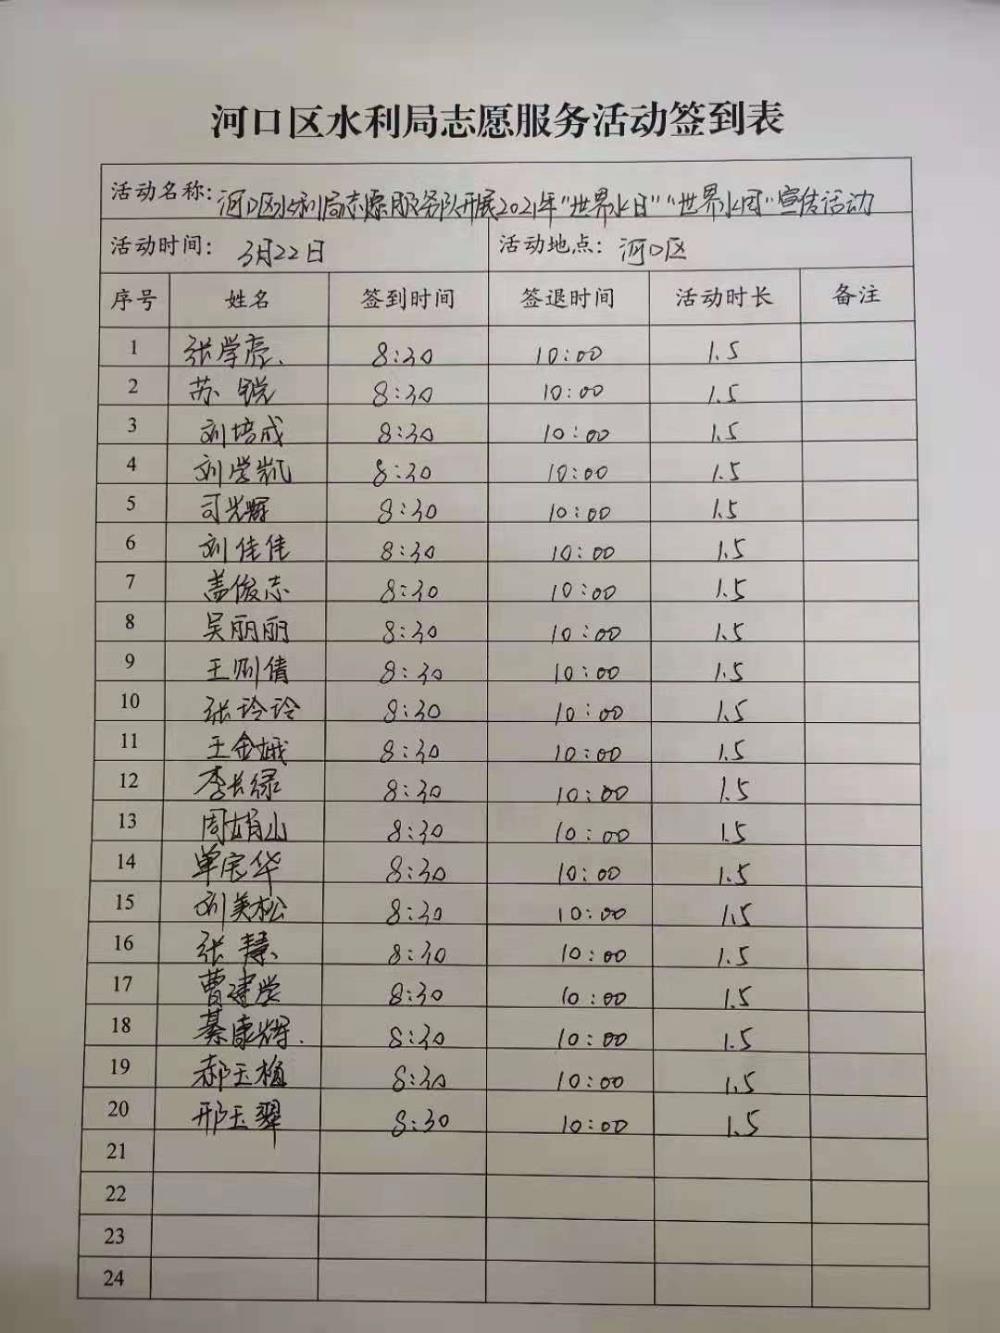 河口区水利局志愿服务活动签到表
活动名称：河口区水利局志愿服务队开展2021年"世界水日""世界水周"宣传活动
活动时间：3月22日 活动地点：河口区
序号 姓名 签到时间 签退时间 活动时长 备注
1 张学亮 8:30 10:00 1.5
2 苏锐 8:30 10:00 1.5
3 刘培成 8:30 10:00 1.5
4 刘学凯 8:30 10:00 1.5
5 司光辉 8:30 10:00 1.5
6 刘佳佳 8:30 10:00 1.5
7 盖俊志 8:30 10:00 1.5
8 吴丽丽 8:30 10:00 1.5
9 王倩 8:30 10:00 1.5
10 张玲玲 8:30 10:00 1.5
11 王金娥 8:30 10:00 1.5
12 李长绿 8:30 10:00 1.5
13 周娟山 8:30 10:00 1.5
14 单宝华 8:30 10:00 1.5
15 刘美松 8:30 10:00 1.5
16 张慧 8:30 10:00 1.5
17 曹建学 8:30 10:00 1.5
18 綦康辉 8:30 10:00 1.5
19 郝玉梅 8:30 10:00 1.5
20 邢玉翠 8:30 10:00 1.5
21
22
23
24